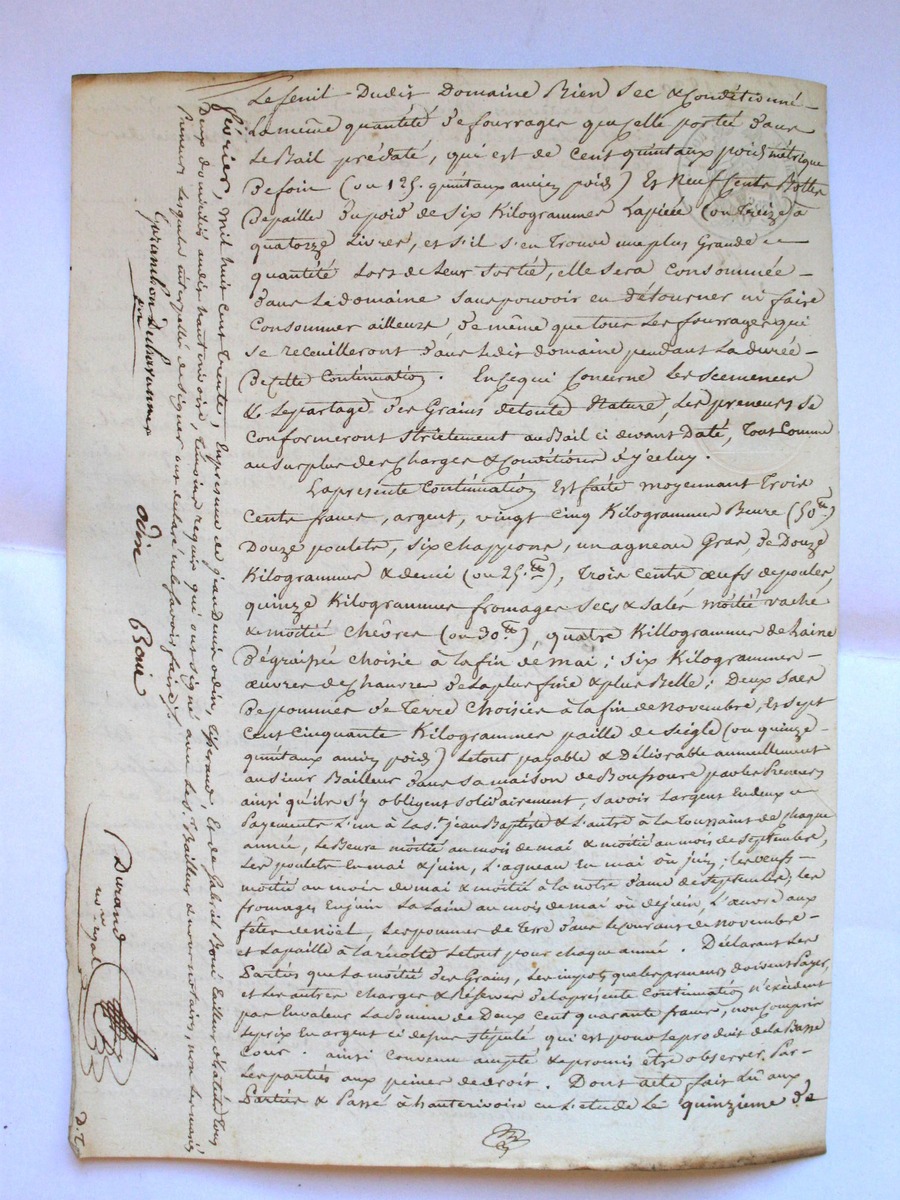 Le fenil Dudit Domaine Bien Sec & Conditionné
La même quantité de fourrages que celle portée dans
Le Bail prédaté, qui est de cent quintaux poids métrique
De foin (ou 125. quintaux ancien poids) Et Neuf Cents Bottes
De paille du poid de six Kilogrammes La pièce (ou Treize à
quatorze Livres, et s'il s'en Trouve une plus Grande
quantité Lors de Leur Sortié, elle sera Consommée
dans Le domaine sans pouvoir en détourner ni faire
Consommer ailleurs de même que tous les fourrages qui
se receuilleront dans Le dit domaine pendant La durée
De cette Continuation. En ce qui Concerne Les Scemences
& Le partage des Grains de toute Nature, Les preneurs Se
Conformeront strictement au Bail ci devant Daté, Tout Comme
au surplus des Charges & Conditions d'y celuy.
La présente Continuation Est faite moyennant Trois
Cents francs, argent, vingt cinq Kilogrammes Beure (50 tt)
Douze poulets, six chappons, un agneau Gras, de Douze
Kilogrammes & demi (ou 25. tt), Trois Cents œufs de poules,
quinze Kilogrammes fromages secs & salés moitié vache
& moitié Chêvres (ou 30 tt), quatre Killogrammes de Laine
dégraissée choisie à la fin de mai; six Kilogrammes
œuvres de Chanvre de la plus fine & plus Belle; Deux sacs
De pommes de Terre Choisies à la fin de novembre, Et Sept
Cent Cinquante Kilogrammes paille de seigle (ou quinze
quintaux ancien poids) Le tout payable & Délivrable annuellement
au sieur Bailleur dans sa maison de par Les Preneurs
ainsi qu'ils s'y obligent solidairement, savoir L'argent En deux
Payements L'un à La St. jean Baptiste & L'autre à la Toussaint de chaque
année, Le Beure moitié au mois de mai & moitié au mois de Septembre,
Les poulets En mai & juin, L'agneau En mai ou juin; Les œufs
moitié au mois de mai & moitié à la notre dame de septembre; Les
fromages En juin La Laine au mois de mai ou de juin L'œuvre aux
fêtes de noël, Les pommes de terre dans Le courant de novembre
et La paille à la récolte Le tout pour chaque année. Déclarant Les
Parties que La moitié des Grains, Les impots que Les preneurs doivent Payer,
et Les autres Charges & Réserves de La présente Continuation n'Excèdent
pas En valeur La Somme de Deux Cent quarante francs, non Compris
Le prix En argent ci dessus stipulé qui est pour Le produit de La Basse
Cour. ainsi Convenu accepté & promis être observer Par
Les parties aux peines de droit. Dont acte fait Lû aux
Parties & Passé à hauterivoire en L'etude Le quinzieme de
février, mil huit cent Trente, En présence de jean Denis odin, Tisserand, Et de Gabriel Boni Tailleur d'habits Tous
Deux domiciliés audit hauterivoire, témoins requis qui ont signé avec Le S. Bailleur & nous notaire, non Les mariés
Preneurs Lesquels interpellés de signer ont declaré ne le savoir faire.
odin Boni
Durand
nre royal
D. T.